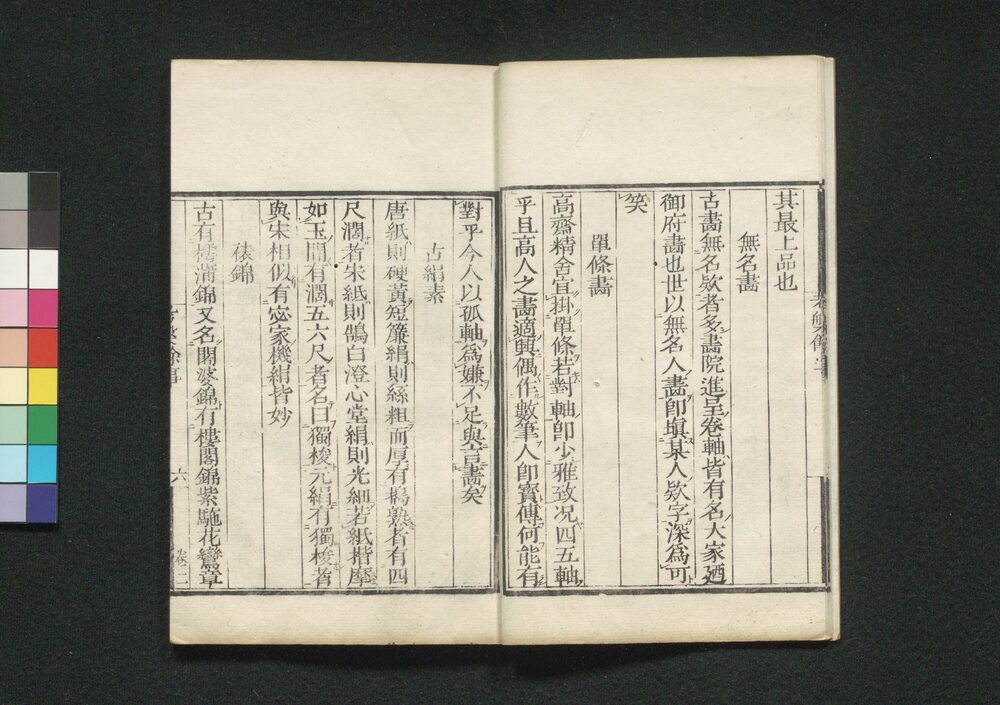 其最上品也
無名畵
古畵無名欵者多畵院進呈卷軸皆有名大家廼
御府畵也世以無名人畵卽塡某人欵字深爲可
笑
單條畵
高齋精舍宜掛單條若對軸卽少雅致况四五軸
乎且高人之畵適興偶作數筆人卽寶傳何能有
對乎今人以孤軸爲嫌不足與言畵矣
古絹素
唐紙則硬黃短簾絹則絲粗而厚有搗熟者有四
尺濶者宋紙則鵠白澄心堂絹則光細若紙揩摩
如玉間有濶五六尺者名曰獨梭元絹有獨梭者
與宋相似有宓家機絹皆妙
裱錦
古有樗蒲錦又名闍婆錦有樓閣錦紫駞花鸞章
六
卷二